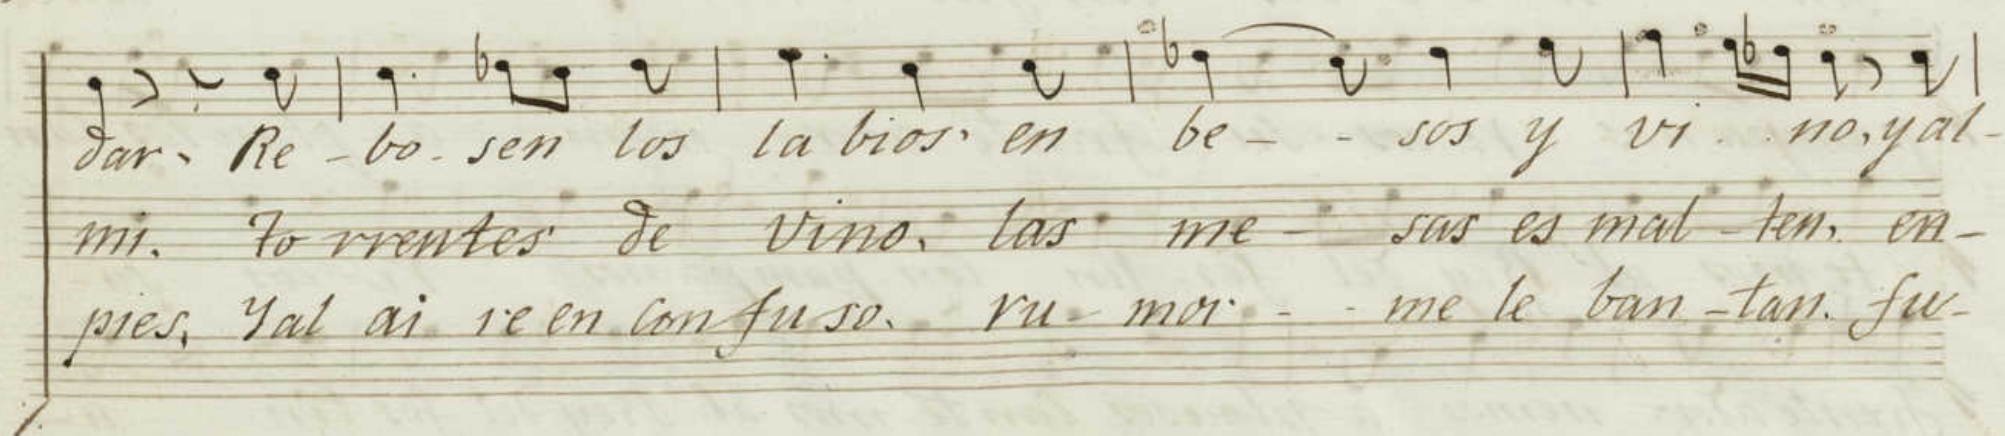 dar. Re-bo-sen los labios. en be---sos y vi..no, y al-
mi. to rrentes de vino. las me-sas es mal-ten. en-
pies, Yal ai re en confuso. ru-mor--me le ban-tan. fu-